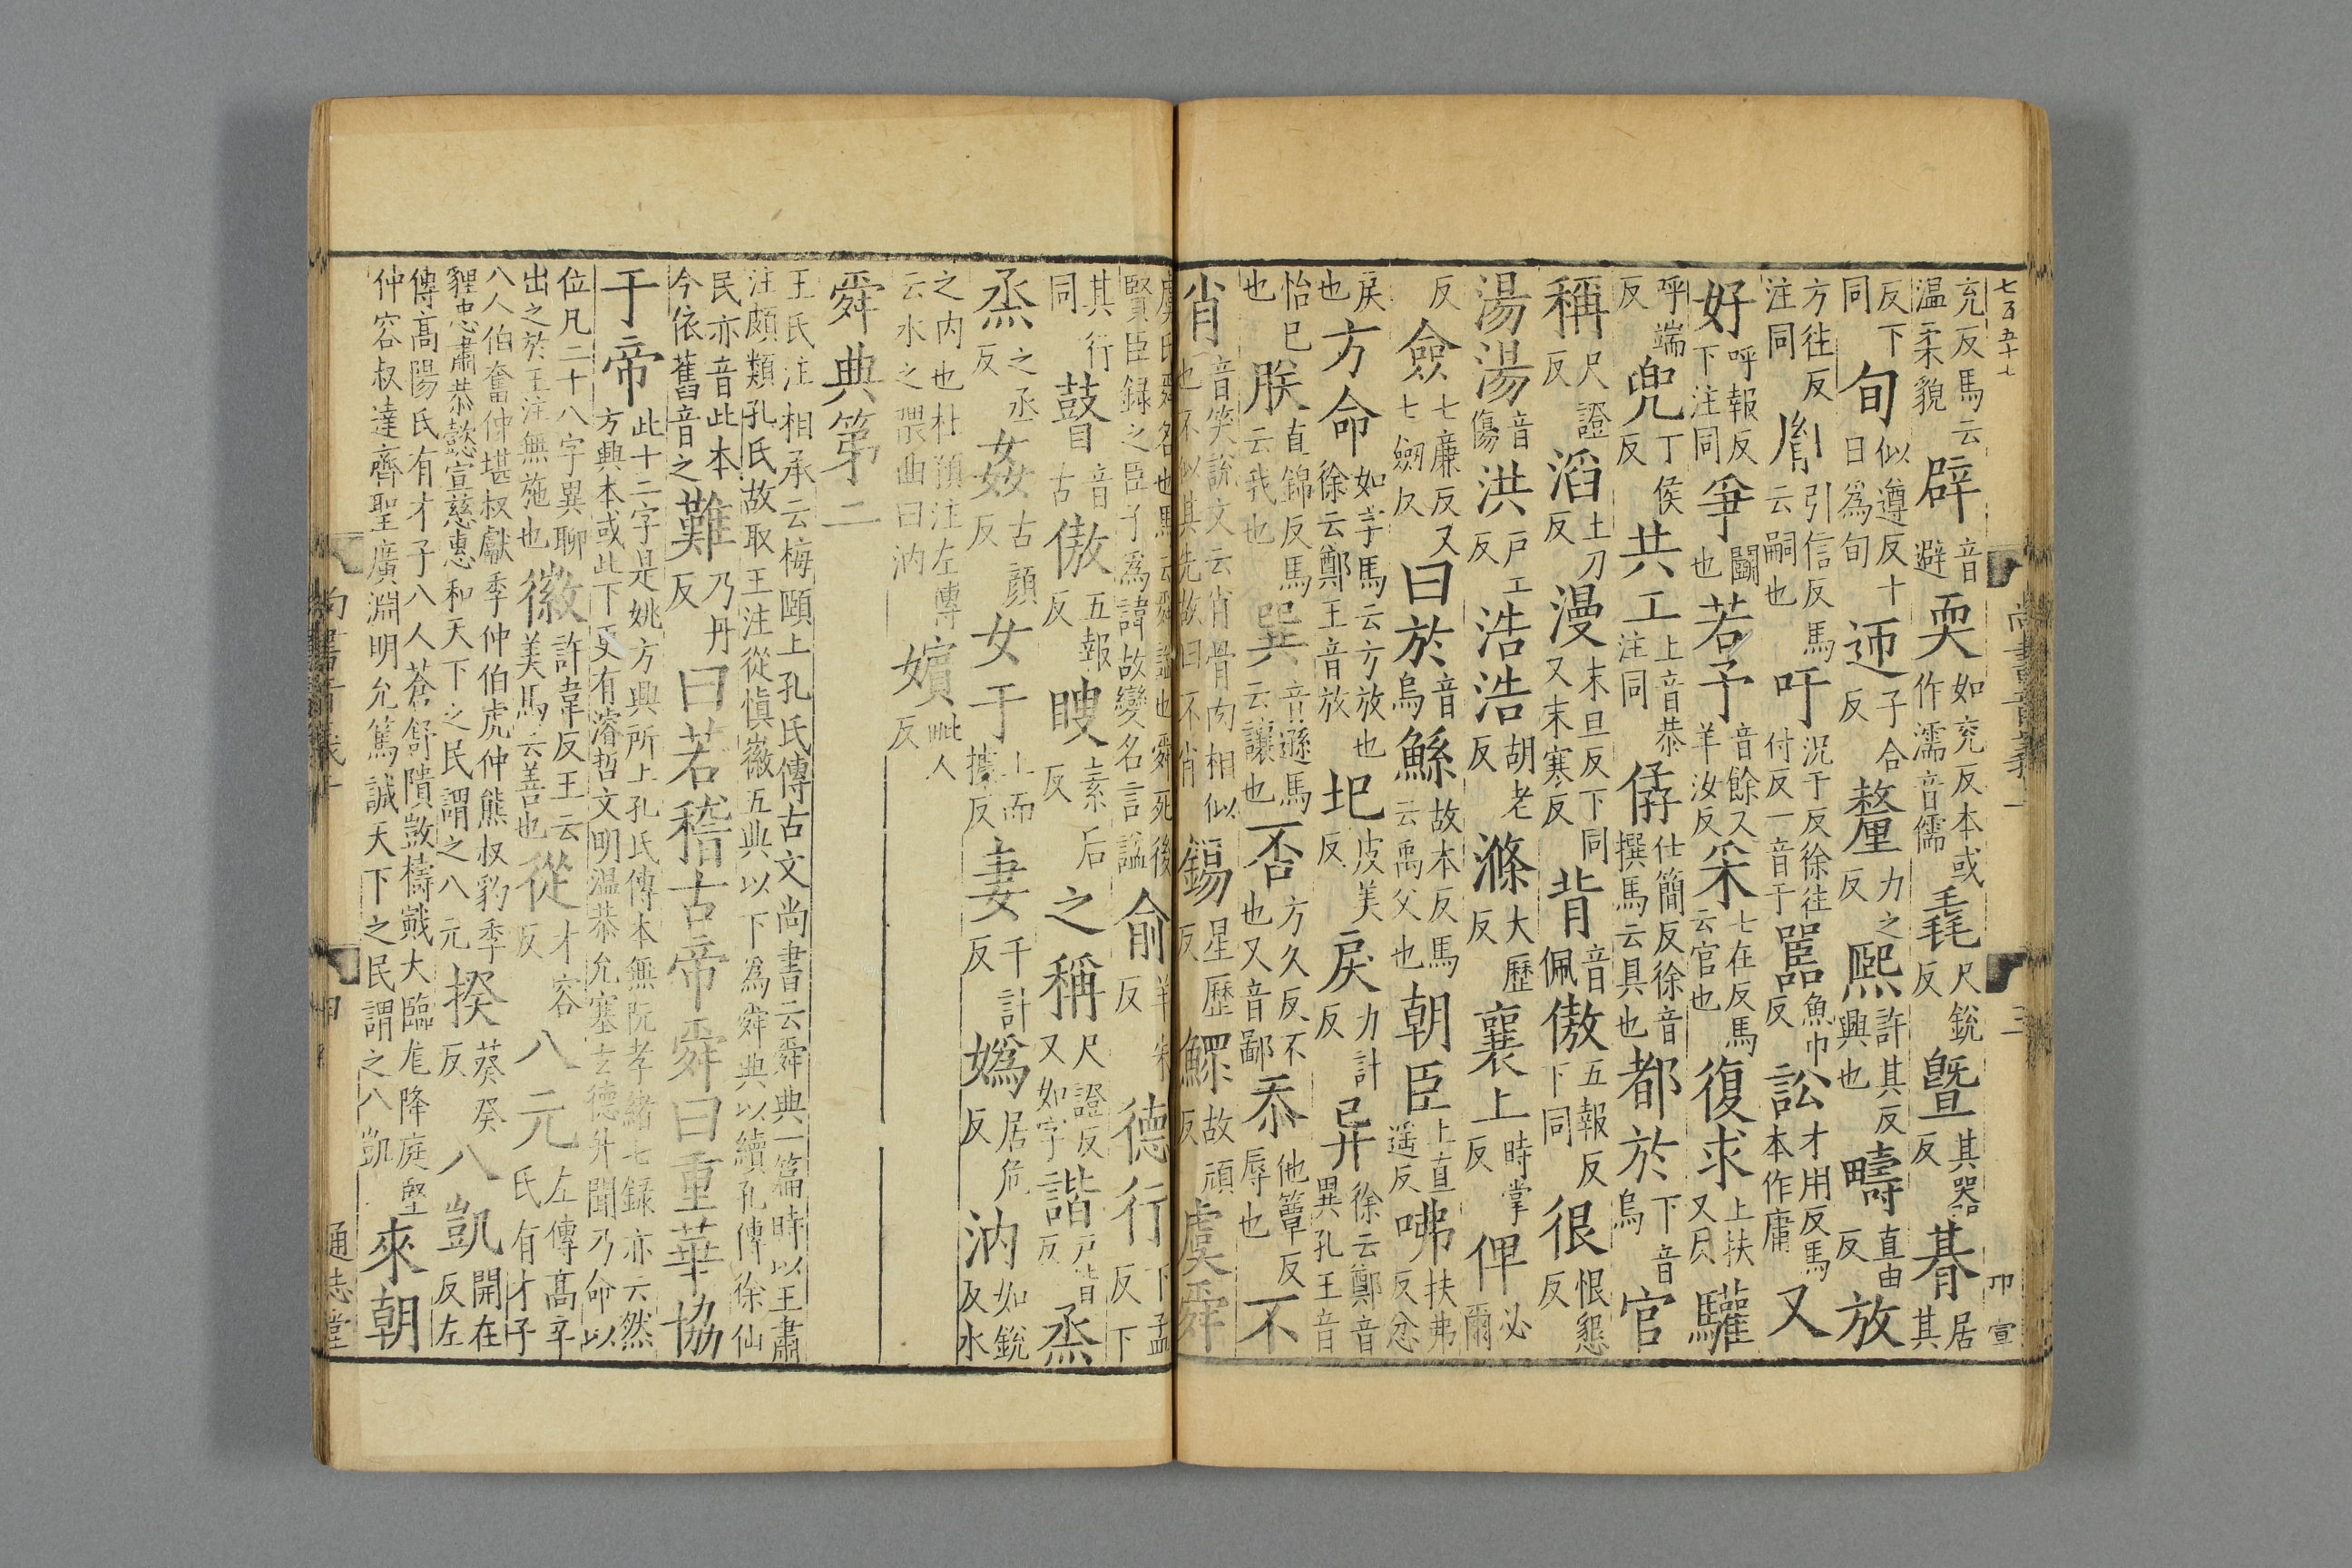 七百五十七 卬宣
充反馬云温柔貌辟音避耎如兖反本或作濡音儒毳尺銳反曁其器反朞居其
反下同旬似遵反十日爲旬迊子合反釐力之反熙許其反興也疇直由反放
方往反注同胤引信反馬云嗣也吁況于反徐往付反一音于嚚魚巾反訟才用反馬本作庸又
好呼報反下注同爭鬭也若予音餘又羊汝反采七在反馬云官也復求上扶又反驩
呼端反兜丁侯反共工上音恭注同僝仕簡反徐音撰馬云具也都於下音烏官
稱尺證反滔土刀反漫末旦反下同又末寒反背音佩傲五報反下同很恨懇反
湯湯音傷洪戸工反浩浩胡老反滌大歷反襄上時掌反俾必爾
反僉七廉反又七劒反曰於音烏鯀故本反馬云禹父也朝臣上直遥反咈扶弗反忿
戾也方命如字馬云方放也徐云鄭王音放圯皮美反戾力計反异徐云鄭音異孔王音
怡已也朕直錦反馬云我也巽音遜馬云讓也否方久反不也又音鄙忝他簟反辱也不
肖音笑說文云肖骨肉相似也不似其先故曰不肖錫星歷反鰥故頑反虞舜
尚書音義上 三
虞氏舜名也馬云舜諡也舜死後賢臣録之臣子爲諱故變名言諡俞羊朱反德行下孟反下
其行同瞽音古傲五報反瞍素后反之稱尺證反又如字諧戸皆反烝
烝之丞反姦古顔反女于上而據反妻千計反嬀居危反汭如銳反水
之内也杜預注左傳云水之隈曲曰汭嬪毗人反
舜典第二
王氏注相承云梅頤上孔氏傳古文尚書云舜典一篇時以王肅注頗類孔氏故取王注從愼徽五典以下爲舜典以續孔傳徐仙
民亦音此本今依舊音之難乃丹反曰若稽古帝舜曰重華協
于帝此十二字是姚方興所上孔氏傳本無阮孝緒七録亦云然方興本或此下更有濬哲文明温恭允塞玄德升聞乃命以
位凡二十八字異聊出之於王注無施也徽許韋反王云美馬云善也從才容反八元左傳高辛氏有才子
八人伯奮仲堪叔獻季仲伯虎仲熊叔豹季貍忠肅恭懿宣慈惠和天下之民謂之八元揆葵癸反八凱開在反左
傳高陽氏有才子八人蒼舒隤敳檮戭大臨尨降庭堅仲容叔達齊聖廣淵明允篤誠天下之民謂之八凱來朝
通志堂